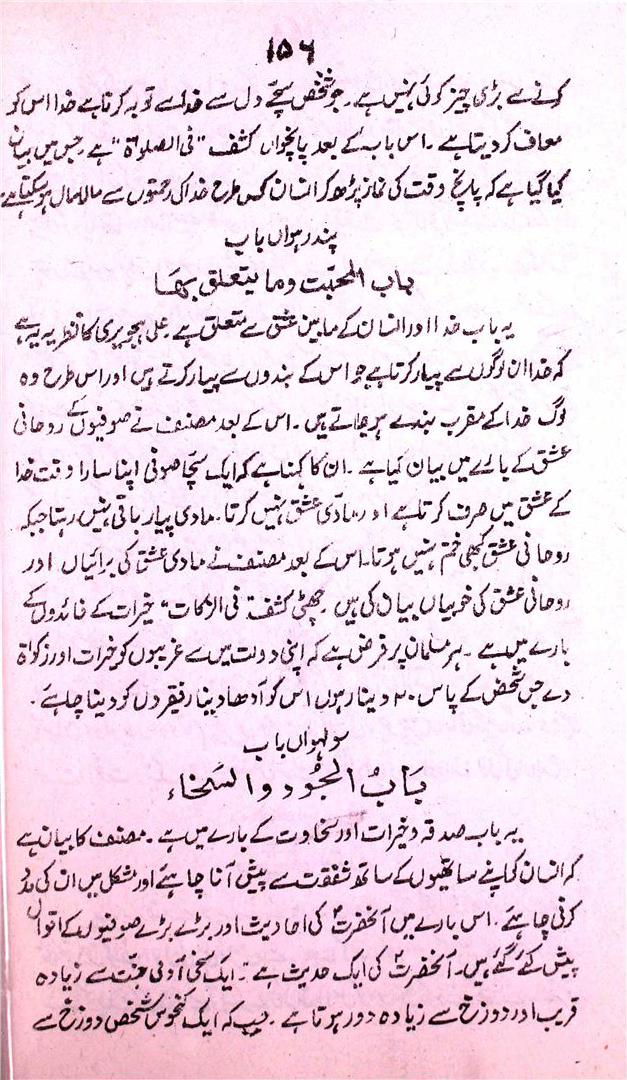 ۱۵۶
کرنے سے بڑی چیز کوئی نہیں ہے۔ جو شخص سچے دل سے خدا سے توبہ کرتا ہے خدا اس کو
معاف کر دیتا ہے۔ اس باب کے بعد پانچواں کشف "فی الصلواۃ" ہے جس میں بیان
کیا گیا ہے کہ پانچ وقت کی نماز پڑھ کر انسان کس طرح خدا کی رحمتوں سے مالا مال ہو سکتا ہے۔
پندرہواں باب
باب المحبّت وما یتعلق بہا
یہ باب خدا اور انسان کے مابین عشق سے متعلق ہے۔ علی ہجویری کا نظریہ یہ ہے
کہ خدا ان لوگوں سے پیار کرتا ہے جو اس کے بندوں سے پیار کرتے ہیں اور اس طرح وہ
لوگ خدا کے مقرب بندے ہو جاتے ہیں۔ اس کے بعد مصنف نے صوفیوں کے روحانی
عشق کے بارے میں بیان کیا ہے۔ ان کا کہنا ہے کہ ایک سچا صوفی اپنا سارا وقت خدا
کے عشق میں صرف کرتا ہے اور مادّی عشق نہیں کرتا۔ مادی پیار باقی نہیں رہتا جبکہ
روحانی عشق کبھی ختم نہیں ہوتا۔ اس کے بعد مصنف نے مادی عشق کی برائیاں اور
روحانی عشق کی خوبیاں بیان کی ہیں۔ چھٹی کشف "فی الزکات" خیرات کے فائدوں کے
بارے میں ہے۔ ہر مسلمان پر فرض ہے کہ اپنی دولت میں سے غریبوں کو خیرات اور زکواۃ
دے جس شخص کے پاس ۲۰ دینار ہوں اس کو آدھا دینار فقروں کو دینا چاہئے۔
سولہواں باب
بَابُ الجُود والسَخاء
یہ باب صدقہ و خیرات اور سخاوت کے بارے میں ہے۔ مصنف کا بیان ہے
کہ انسان کو اپنے ساتھیوں کے ساتھ شفقت سے پیش آنا چاہئے اور مشکل میں ان کی مدد
کرنی چاہئے۔ اس بارے میں آنحضرتؐ کی احادیث اور بڑے بڑے صوفیوں کے اقوال
پیش کئے گئے ہیں۔ آنحضرتؐ کی ایک حدیث ہے۔ ایک سخی آدمی جنّت سے زیادہ
قریب اور دوزخ سے زیادہ دور ہوتا ہے۔ جب کہ ایک کنجوس شخص دوزخ سے